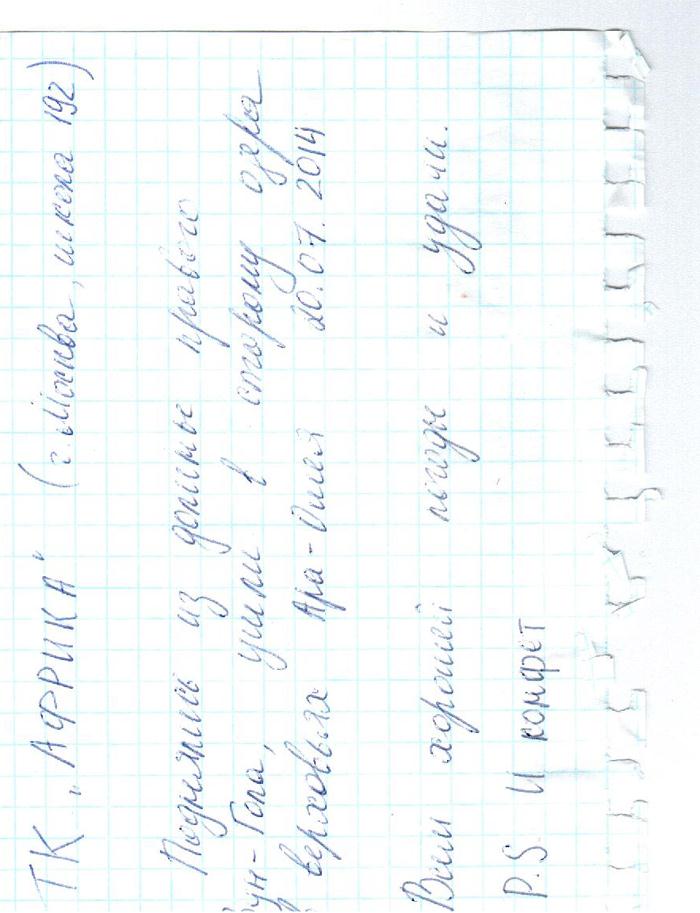 ТК „АФРИКА“ (г. Москва, школа 192)
Поднялись из долины правого
ун-Гола, ушли к второму озера
верховьях Ара-Ошей 20.07.2014
Всем хорошей погоды и удачи.
P.S И конфет